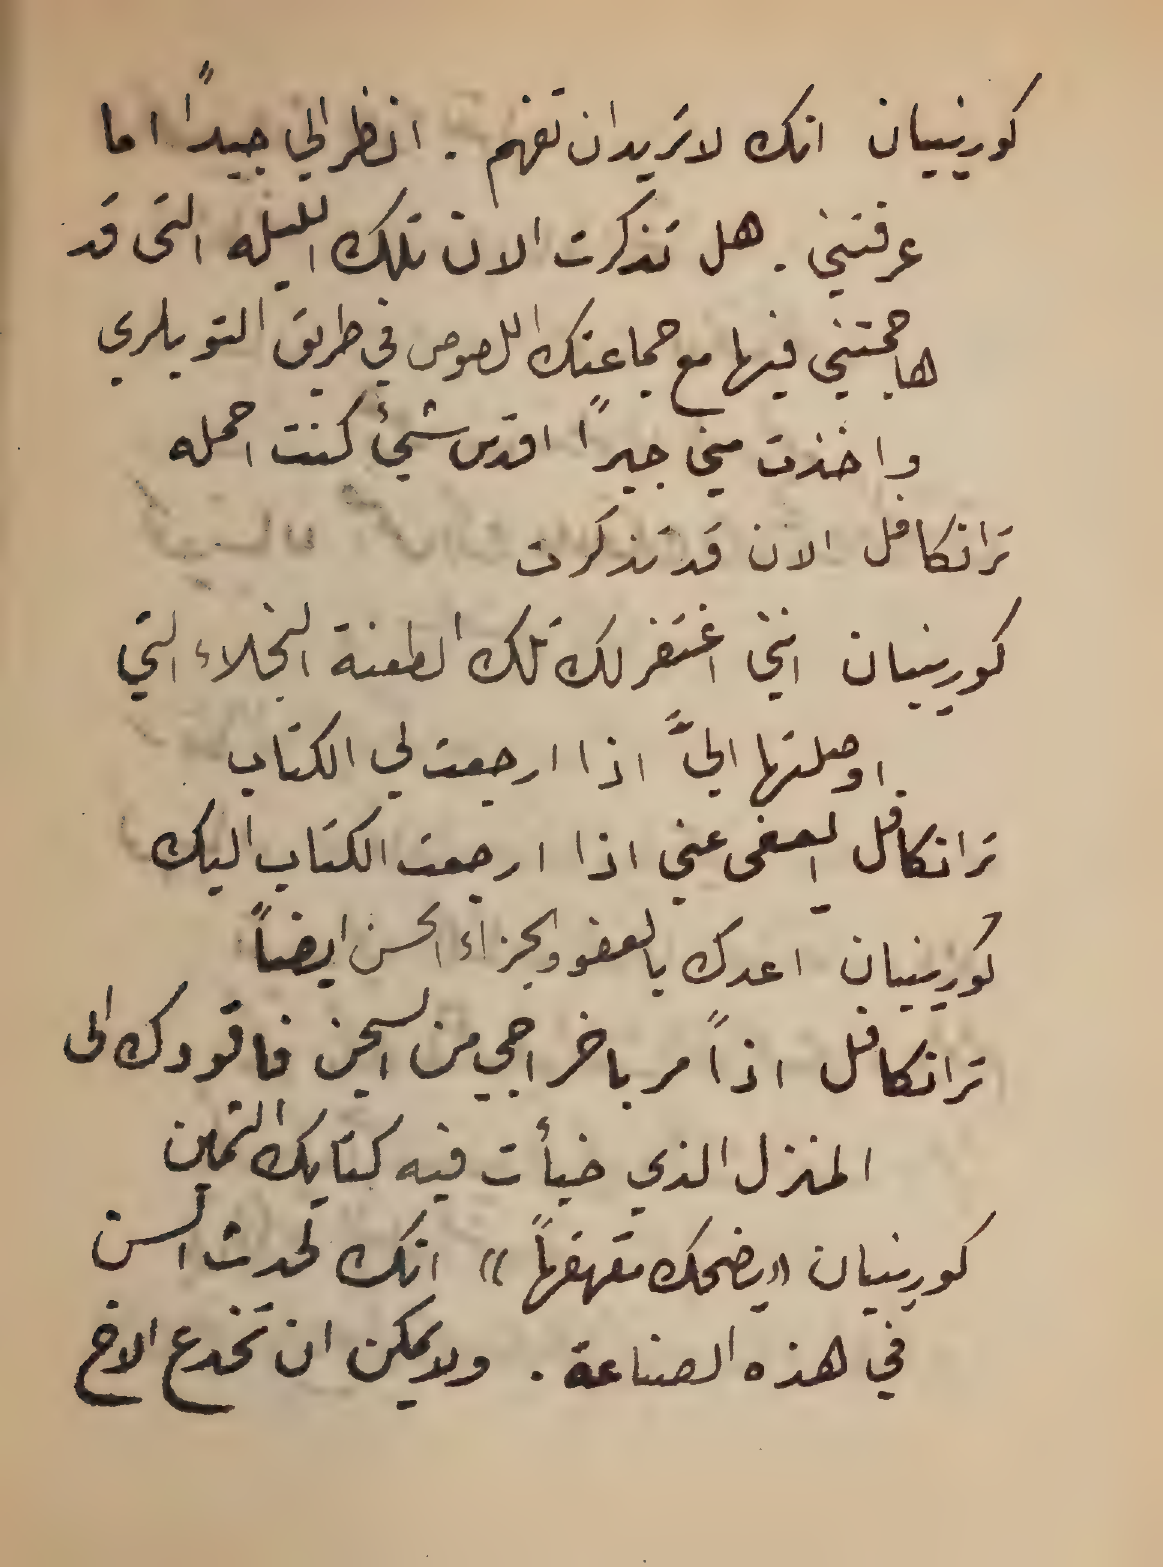 كورينيان انك لا تريد ان تفهم . انظر الي جيداً اما
عرفتني . هل تذكرت الان تلك الليله التى قد
هاجمتني فيها مع جماعتك اللصوص في طريق التويلري
واخذت مني جبراً اقدس شيئ كنت احمله
ترانكافل الان قد تذكرت
كورينيان انني اغتفر لك تلك الطعنة النجلاء التي
اوصلتها اليَّ اذا ارجعت لي الكتاب
ترانكافل ايعفى عني اذا ارجعت الكتاب اليك
كورينيان اعدك بالعفو والجزاء الحسن ايضاً
ترانكافل اذاً مر باخراجي من السجن فاقودك الى
المنزل الذي خبأت فيه كتابك الثمين
كورينيان «يضحك مقهقهاً» انك لحدث السن
في هذه الصناعة . ولا يمكن ان تخدع الاخ